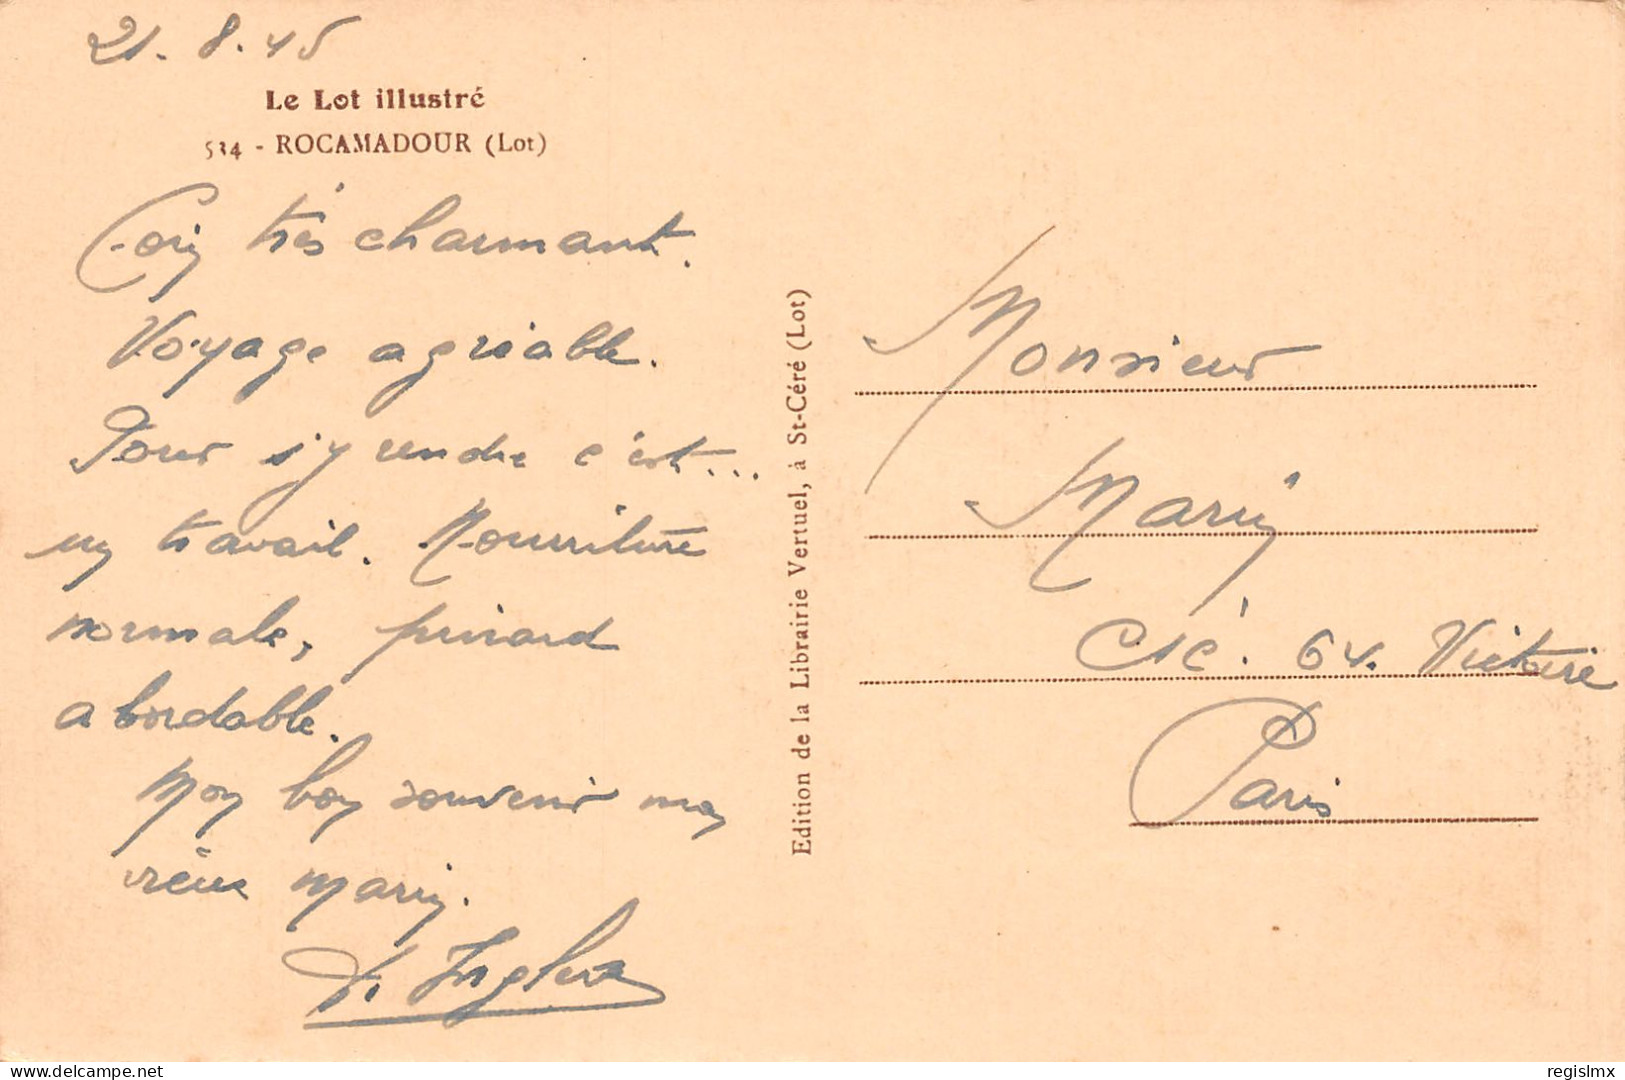 21.8.45
Le Lot illustré
534 - ROCAMADOUR (Lot)
Coin très charmant.
Voyage agréable.
Pour s'y rendre c'est...
un travail. Nourriture
normale, pinard
abordable.
Mon bon souvenir mon
vieux Marin.
Edition de la Librairie Vertuel, à St-Céré (Lot)
Monsieur
Marin
Cie. 64. Victoire
Paris
delcampe.net
regislmx